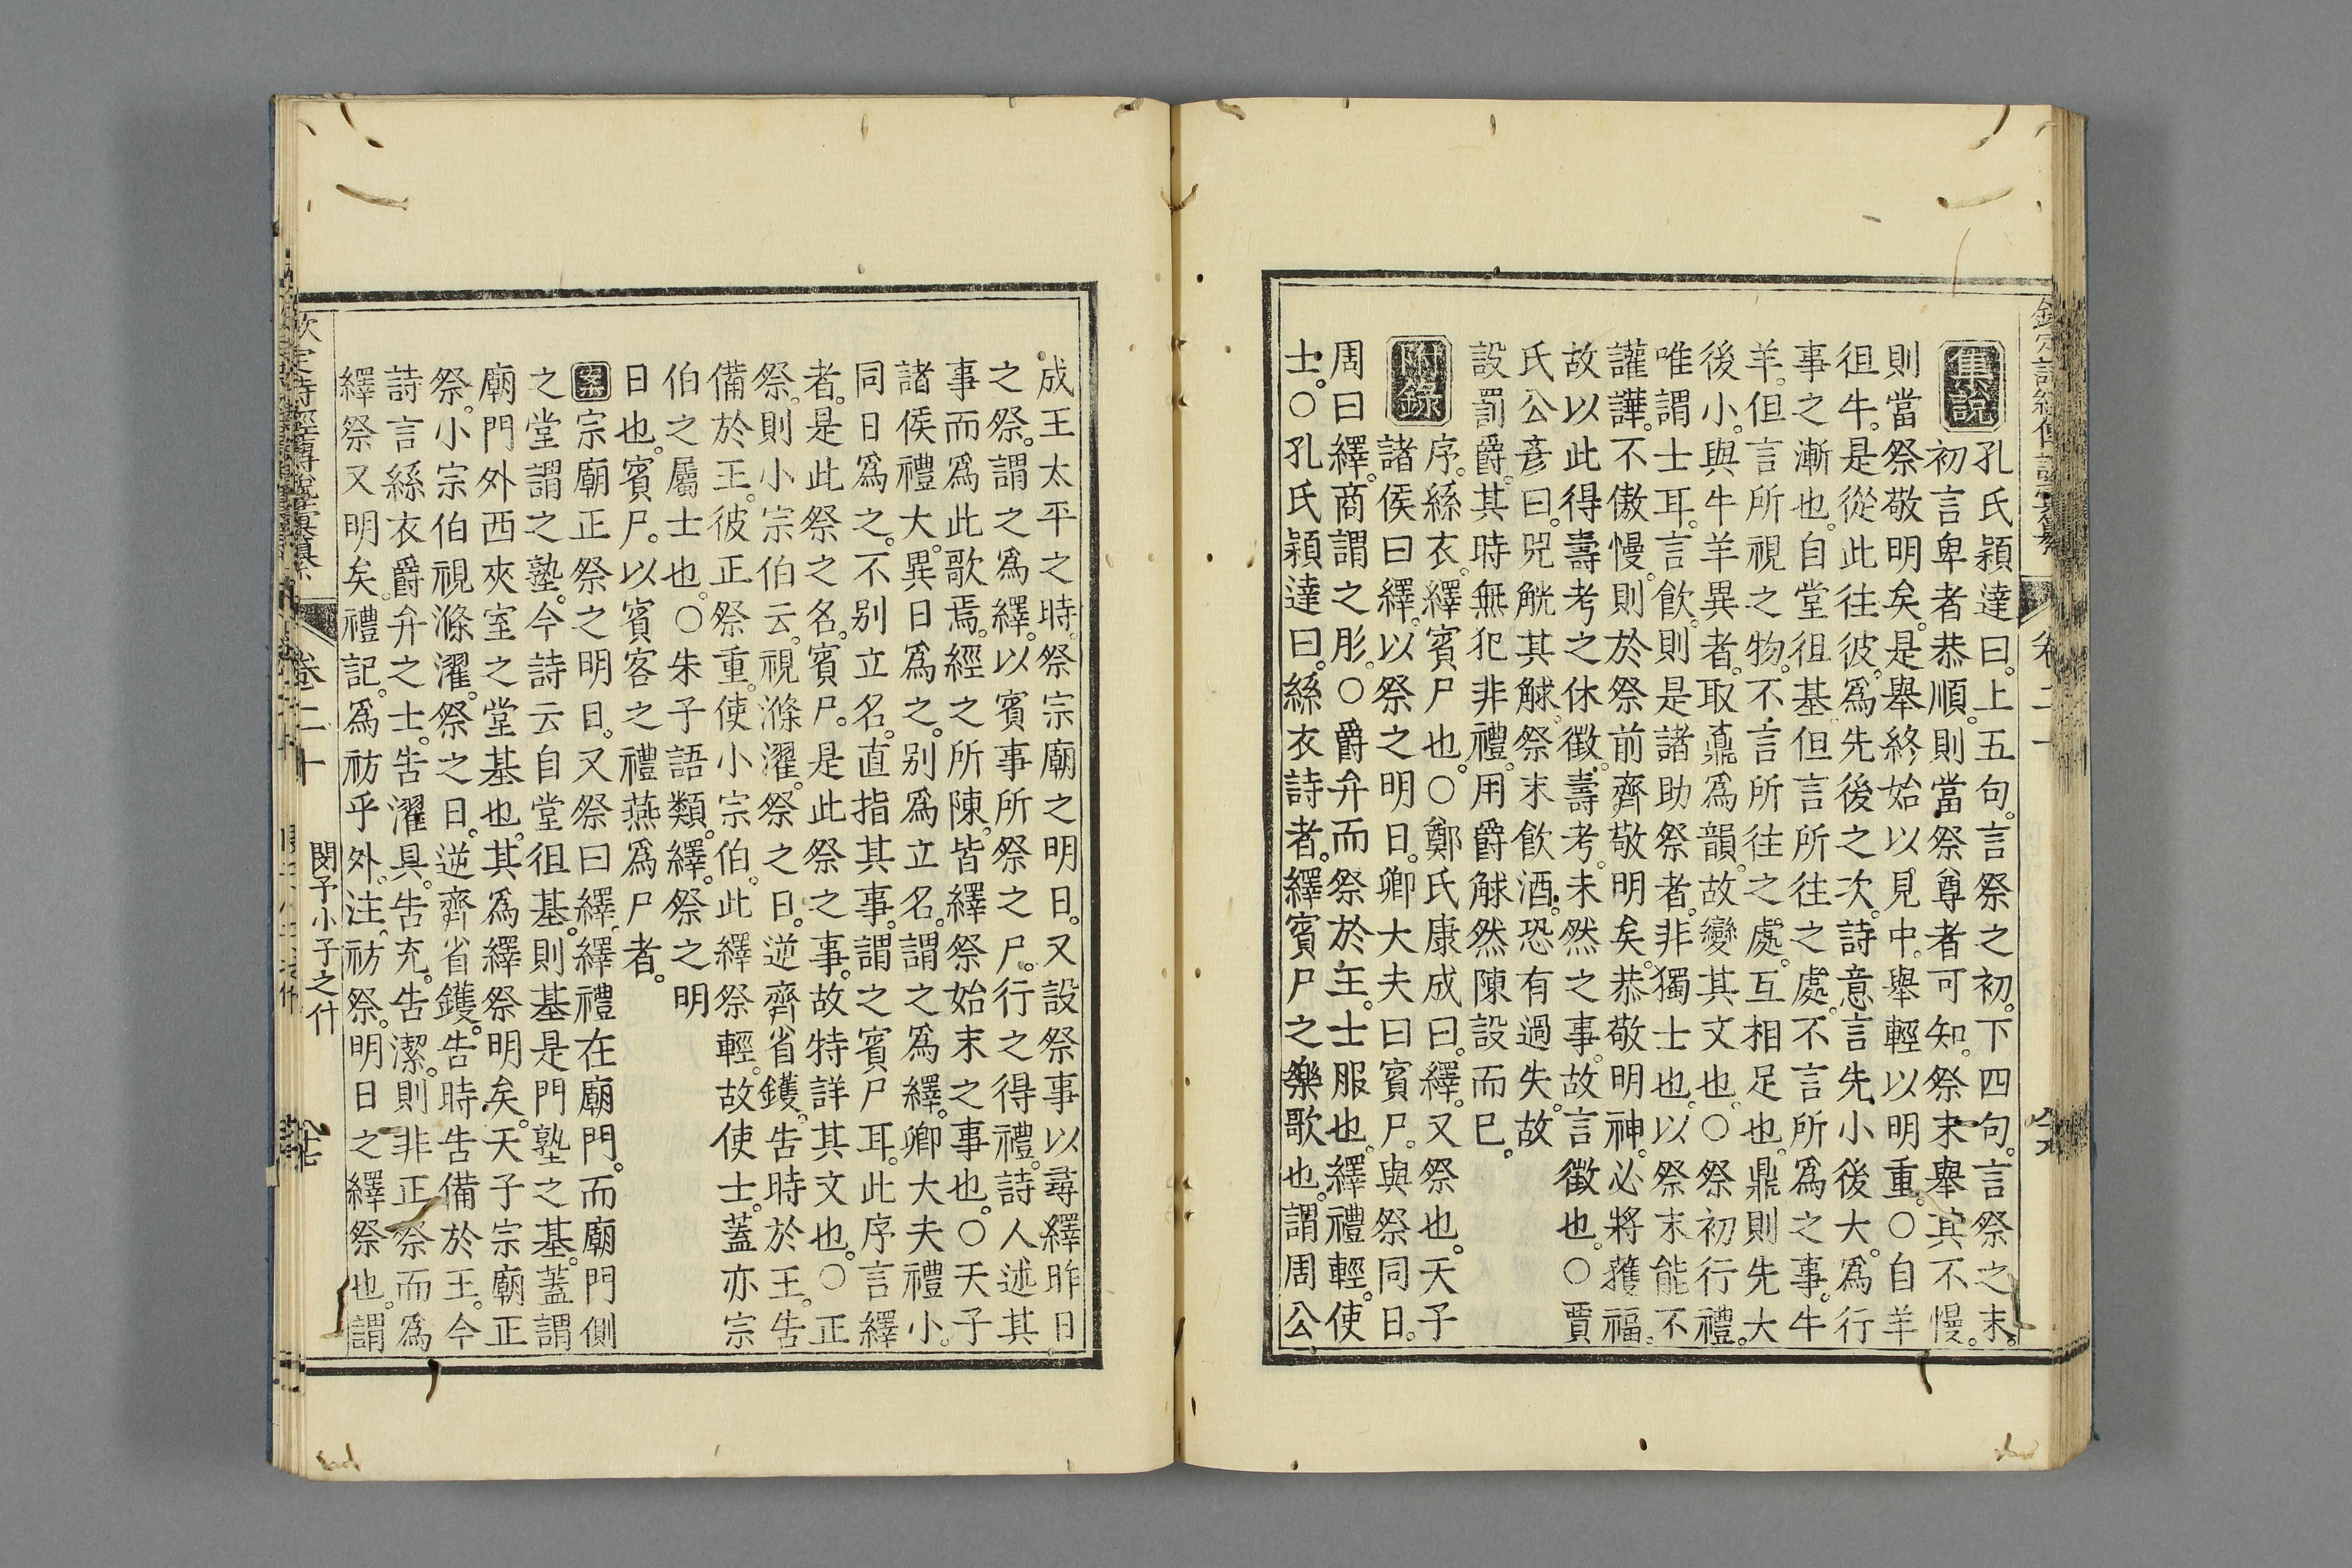 集說
孔氏穎達曰。上五句。言祭之初。下四句。言祭之末。
初言卑者恭順。則當祭尊者可知。祭末舉其不慢。
則當祭敬明矣。是舉終始以見中。舉輕以明重。○自羊
徂牛。是從此往彼。為先後之次。詩意言先小後大。為行
事之漸也。自堂徂基。但言所往之處。不言所為之事。牛
羊。但言所視之物。不言所往之處。互相足也。鼎則先大
後小。與牛羊異者。取鼒為韻。故變其文也。○祭初行禮。
唯謂士耳。言飲。則是諸助祭者。非獨士也。以祭末能不
讙譁。不傲慢。則於祭前齊敬明矣。恭敬明神。必將獲福。
故以此得壽考之休徵。壽考。未然之事。故言徵也。○賈
氏公彥曰。兕觥其觩。祭末飲酒。恐有過失。故
設罰爵。其時無犯非禮。用爵觩然陳設而已。
附錄
序。絲衣。繹賓尸也。○鄭氏康成曰。繹。又祭也。天子
諸侯曰繹。以祭之明日。卿大夫曰賓尸。與祭同日。
周曰繹。商謂之肜。○爵弁而祭於王。士服也。繹禮輕。使
士。○孔氏穎達曰。絲衣詩者。繹賓尸之樂歌也。謂周公
成王太平之時。祭宗廟之明日。又設祭事以尋繹昨日
之祭。謂之為繹。以賓事所祭之尸。行之得禮。詩人述其
事而為此歌焉。經之所陳。皆繹祭始末之事也。○天子
諸侯禮大。異日為之。別為立名。謂之為繹。卿大夫禮小。
同日為之。不別立名。直指其事。謂之賓尸耳。此序言繹
者。是此祭之名。賓尸。是此祭之事。故特詳其文也。○正
祭。則小宗伯云。視滌濯。祭之日。逆齊省鑊。告時於王。告
備於王。彼正祭重。使小宗伯。此繹祭輕。故使士。蓋亦宗
伯之屬士也。○朱子語類。繹。祭之明
日也。賓尸。以賓客之禮燕為尸者。
案宗廟正祭之明日。又祭曰繹。繹禮在廟門。而廟門側
之堂謂之塾。今詩云自堂徂基。則基是門塾之基。蓋謂
廟門外西夾室之堂基也。其為繹祭明矣。天子宗廟正
祭。小宗伯視滌濯。祭之日。逆齊省鑊。告時告備於王。今
詩言絲衣爵弁之士。告濯具。告充。告潔。則非正祭而為
繹祭又明矣。禮記。為祊乎外。注。祊祭。明日之繹祭也。謂
欽定詩經傳說彙纂
卷二十
閔予小子之什